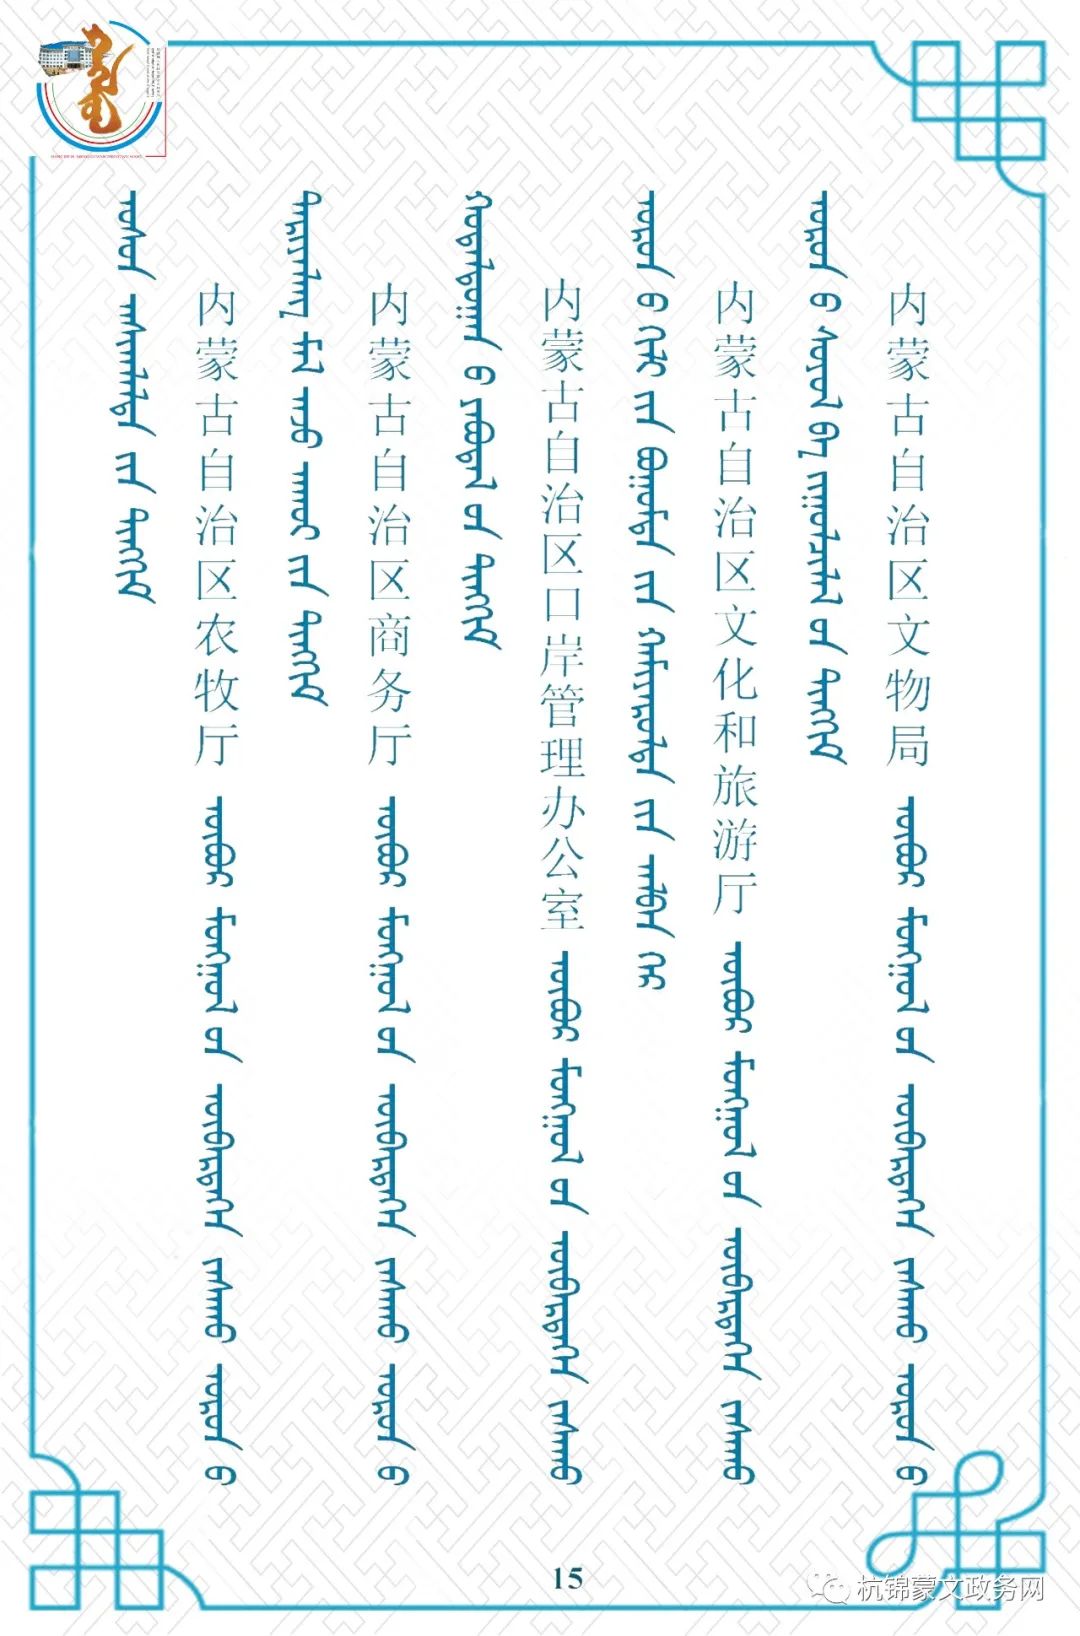 ᠤᠰᠤᠨ ᠠᠰᠢᠭᠯᠠᠯᠲᠠ ᠶᠢᠨ ᠲᠢᠩᠬᠢᠮ
内蒙古自治区农牧厅 ᠥᠪᠥᠷ ᠮᠣᠩᠭᠣᠯ ᠤᠨ ᠥᠪᠡᠷᠲᠡᠭᠡᠨ ᠵᠠᠰᠠᠬᠤ ᠣᠷᠣᠨ ᠤ
ᠲᠠᠷᠢᠶᠠᠯᠠᠩ ᠮᠠᠯ ᠠᠵᠤ ᠠᠬᠤᠢ ᠶᠢᠨ ᠲᠢᠩᠬᠢᠮ
内蒙古自治区商务厅 ᠥᠪᠥᠷ ᠮᠣᠩᠭᠣᠯ ᠤᠨ ᠥᠪᠡᠷᠲᠡᠭᠡᠨ ᠵᠠᠰᠠᠬᠤ ᠣᠷᠣᠨ ᠤ
ᠬᠤᠳᠠᠯᠳᠤᠭᠠᠨ ᠤ ᠶᠠᠪᠤᠳᠠᠯ ᠤᠨ ᠲᠢᠩᠬᠢᠮ
内蒙古自治区口岸管理办公室 ᠥᠪᠥᠷ ᠮᠣᠩᠭᠣᠯ ᠤᠨ ᠥᠪᠡᠷᠲᠡᠭᠡᠨ ᠵᠠᠰᠠᠬᠤ
ᠣᠷᠣᠨ ᠤ ᠬᠢᠯᠢ ᠶᠢᠨ ᠪᠣᠭᠣᠮᠲᠠ ᠶᠢᠨ ᠬᠠᠮᠢᠶᠠᠷᠤᠯᠲᠠ ᠶᠢᠨ ᠠᠯᠪᠠᠨ ᠭᠡᠷ
内蒙古自治区文化和旅游厅 ᠥᠪᠥᠷ ᠮᠣᠩᠭᠣᠯ ᠤᠨ ᠥᠪᠡᠷᠲᠡᠭᠡᠨ ᠵᠠᠰᠠᠬᠤ
ᠣᠷᠣᠨ ᠤ ᠰᠣᠶᠣᠯ ᠪᠠ ᠵᠢᠭᠤᠯᠴᠢᠯᠠᠯ ᠤᠨ ᠲᠢᠩᠬᠢᠮ
内蒙古自治区文物局 ᠥᠪᠥᠷ ᠮᠣᠩᠭᠣᠯ ᠤᠨ ᠥᠪᠡᠷᠲᠡᠭᠡᠨ ᠵᠠᠰᠠᠬᠤ ᠣᠷᠣᠨ ᠤ
15
杭锦蒙文政务网